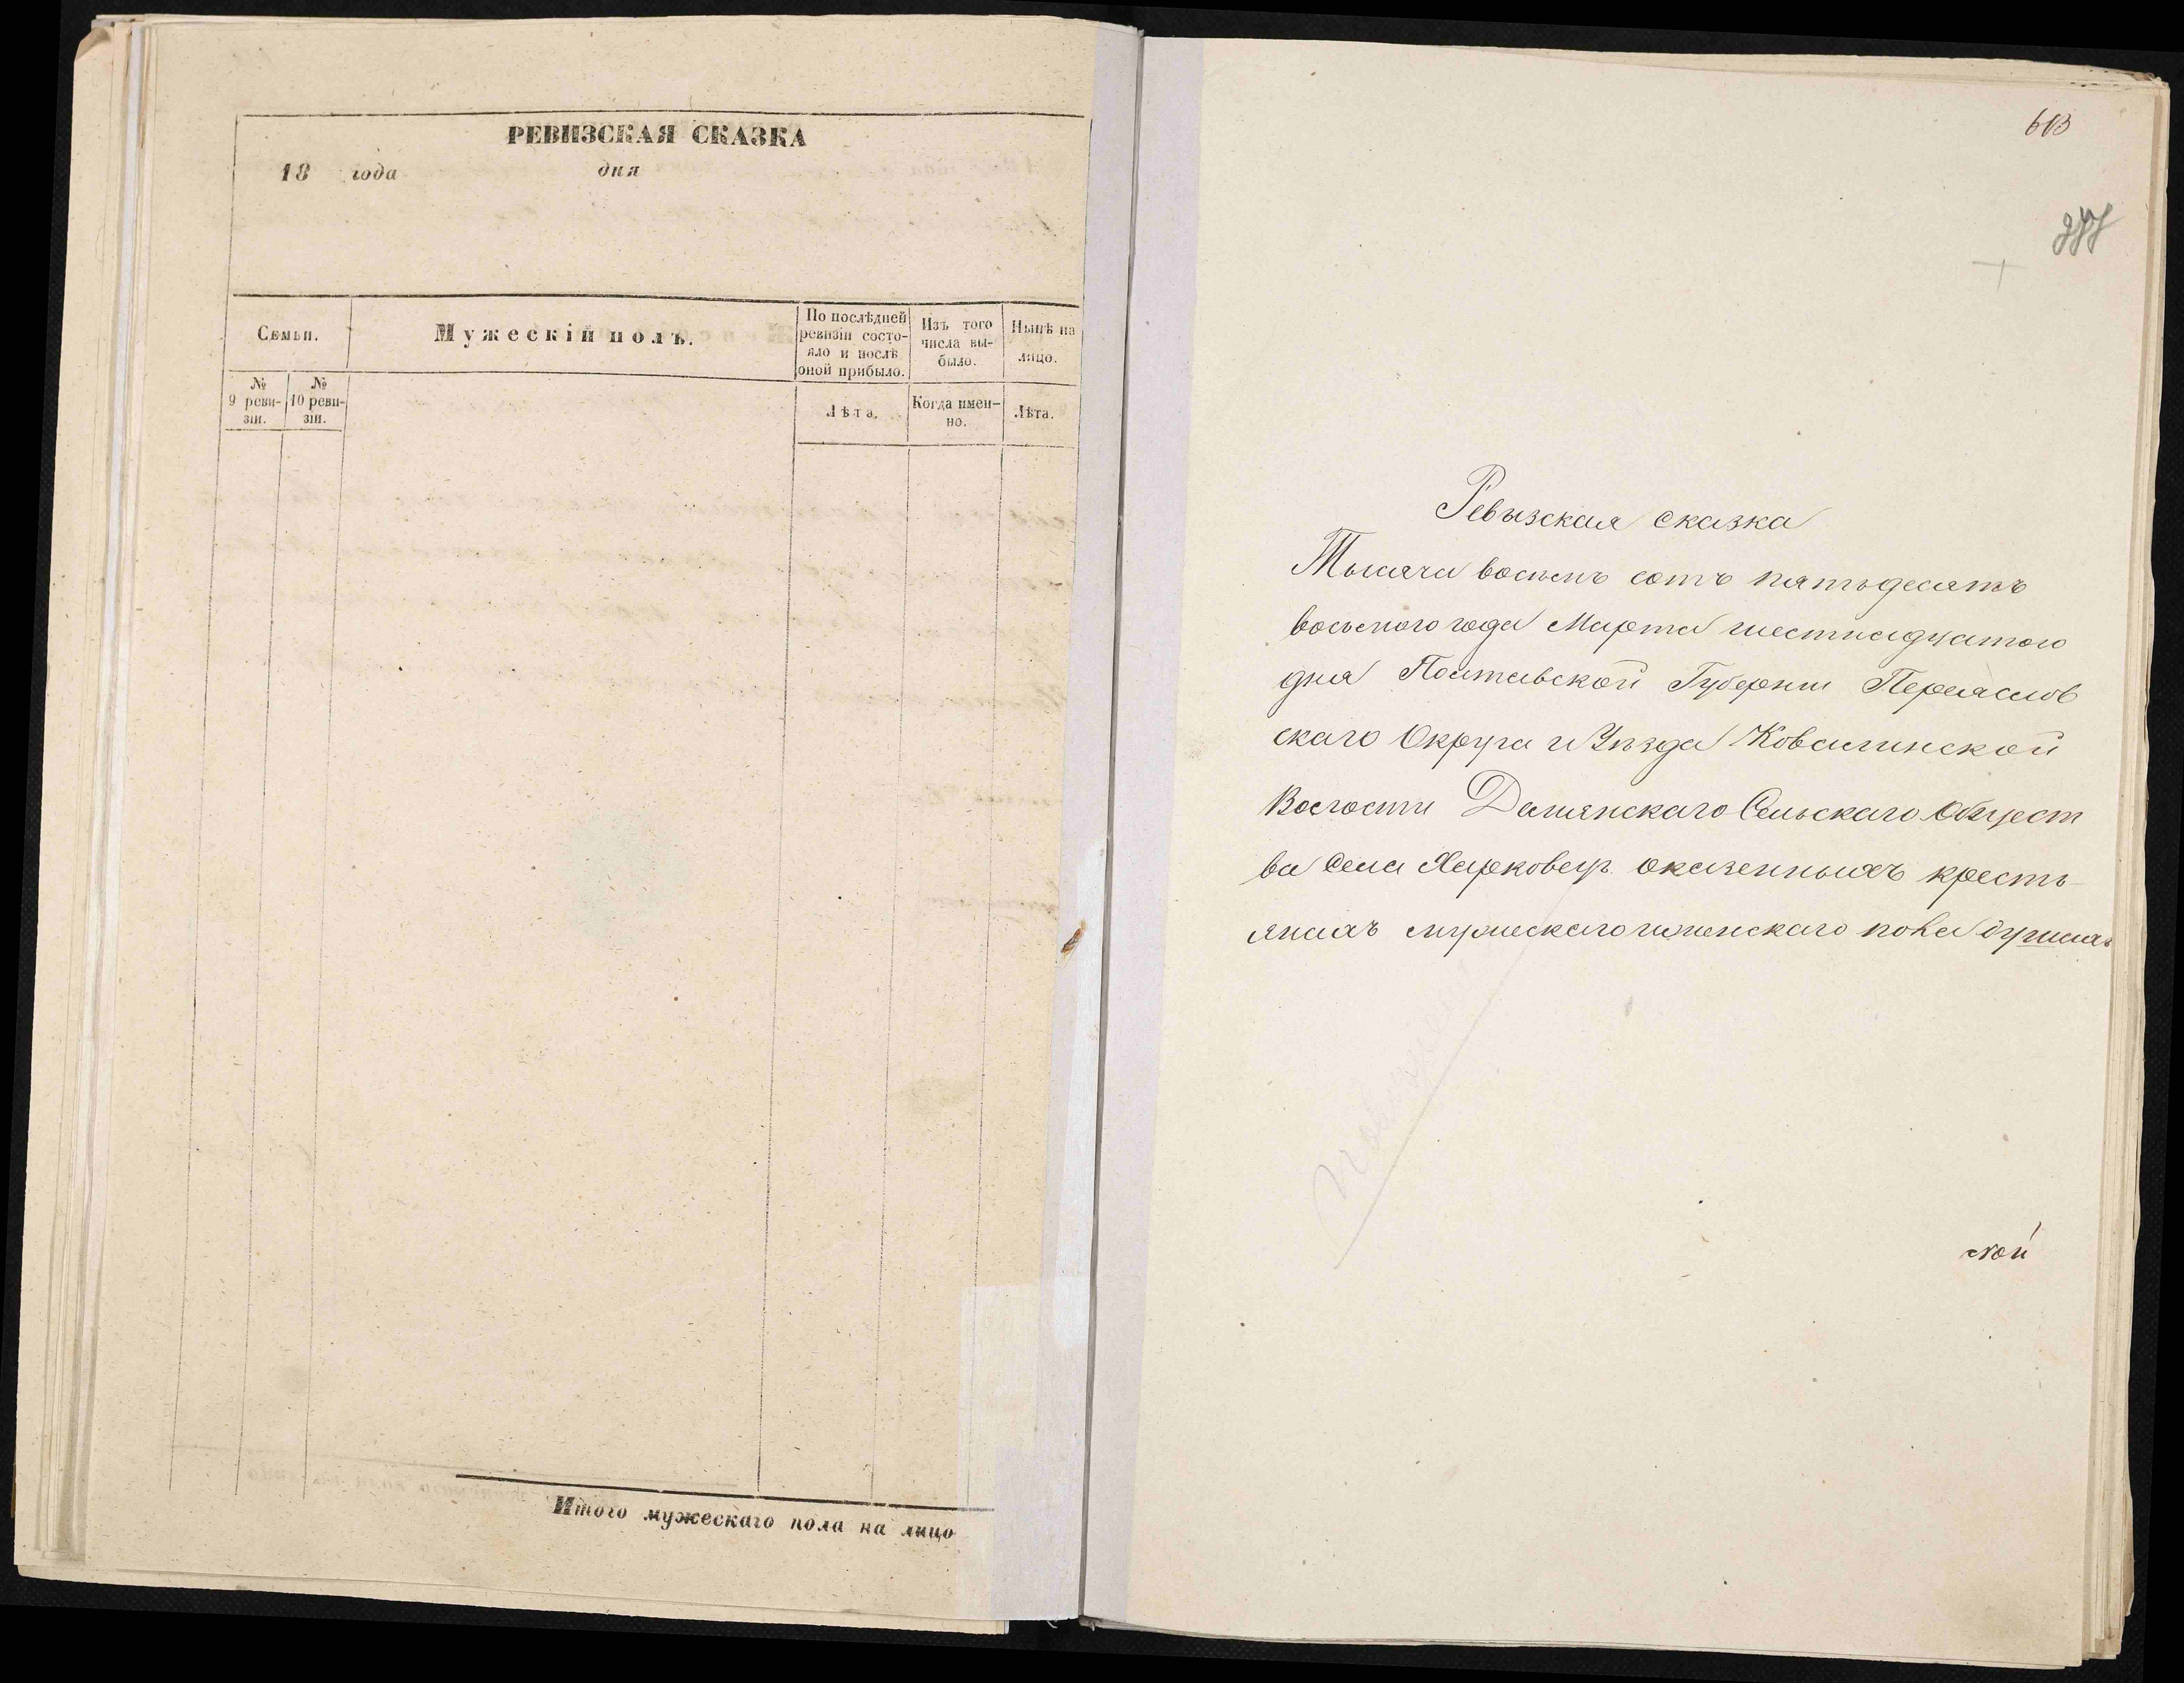 РЕВИЗСКАЯ СКАЗКА
18 года дня
Семьи.
Мужескій полъ.
По послѣдней ревизіи состояло и послѣ оной прибыло.
Изъ того числа выбыло.
Нынѣ на лицо.
№ 9 ревизіи.
№ 10 ревизіи.
Лѣта.
Когда именно.
Лѣта.
Итого мужескаго пола на лицо
613
Ревызская сказка
Тысяча восемь сотъ пятьдесятъ
восьмого года Марта шестнадцатого
дня Полтавской Губернии Переаслов
скаго Округа и Уѣзда Ковалинской
Волости Демянскаго Сельскаго Общест
ва Села Харковецъ оказенныхъ кресть
янахъ мужескаго иженскаго пола душахъ
ской